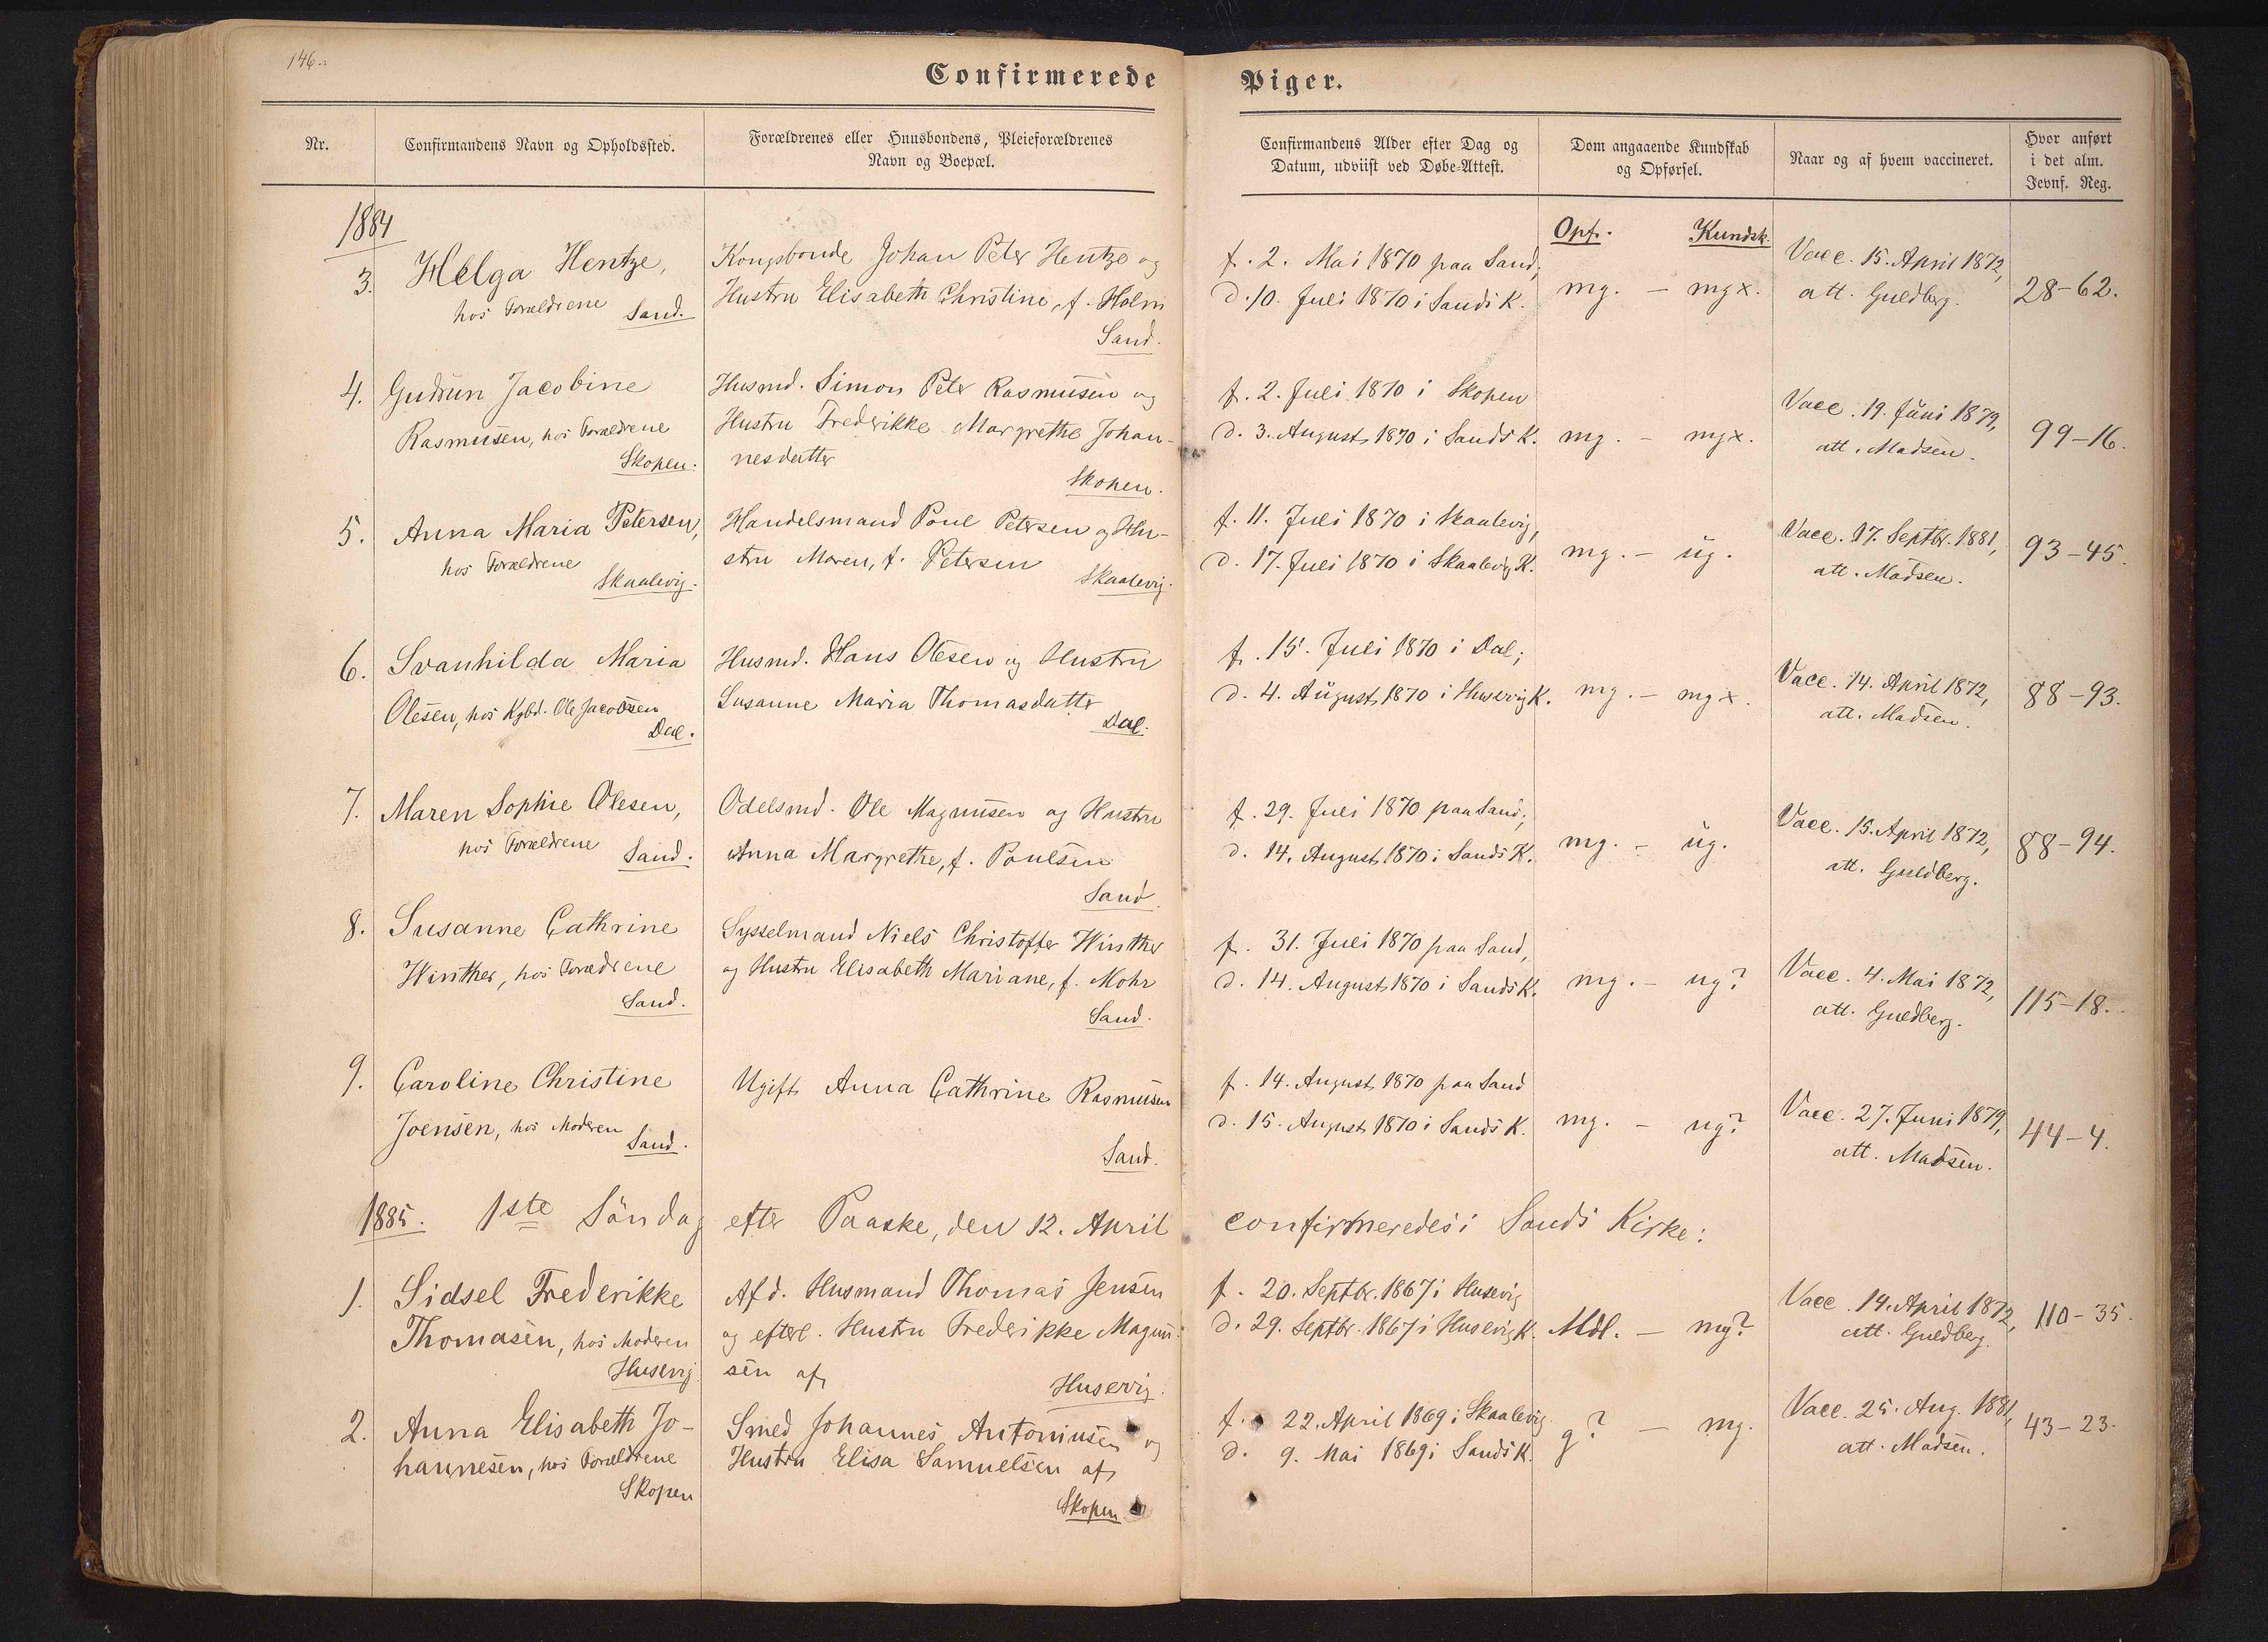 146.
Confirmerede Piger.
Nr.
Confirmandens Navn og Opholdssted.
Forældrenes eller Huusbondens, Pleieforældrenes
Navn og Boepæl.
Confirmandens Alder efter Dag og
Datum, udviist ved Døbe-Attest.
Dom angaaende Kundskab
og Opførsel.
Naar og af hvem vaccineret.
Hvor anført
i det alm.
Jevnf. Reg.
1884
Opf. Kundsk.
3.
Helga Hentze,
hos Forældrene
Sand.
Kongsbonde Johan Peter Hentze og
Hustru Elisabeth Christine, f. Holm
Sand.
f. 2. Mai 1870 paa Sand,
d. 10. Juli 1870 i Sands K.
mg. - mgx.
Vacc. 15. April 1872,
att. Guldberg.
28-62.
4.
Gudrun Jacobine
Rasmusen, hos Forældrene
Skopen.
Husmd. Simon Peter Rasmusen og
Hustru Frederikke Margrethe Johan-
nesdatter
Skopen.
f. 2. Juli 1870 i Skopen
d. 3. August 1870 i Sands K.
mg. - mgx.
Vacc. 19. Juni 1879,
att. Madsen.
99-16.
5.
Anna Maria Petersen,
hos Forældrene
Skaalevig.
Handelsmand Poul Petersen og Hu-
stru Maren, f. Petersen
Skaalevig.
f. 11. Juli 1870 i Skaalevig,
d. 17. Juli 1870 i Skaalevig K.
mg. - ug.
Vacc. 17. Septbr. 1881,
att. Madsen.
93-45.
6.
Svanhilda Maria
Olesen, hos Kgbd. Ole Jacobsen
Dal.
Husmd. Hans Olesen og Hustru
Susanne Maria Thomasdatter
Dal.
f. 15. Juli 1870 i Dal;
d. 4. August 1870 i Husevig K.
mg. - mgx.
Vacc. 14. April 1872,
att. Madsen.
88-93.
7.
Maren Sophie Olesen,
hos Forældrene
Sand.
Odelsmd. Ole Magnusen og Hustru
Anna Margrethe, f. Poulsen
Sand.
f. 29. Juli 1870 paa Sand;
d. 14. August 1870 i Sands K.
mg. - ug.
Vacc. 15. April 1872,
att. Guldberg.
88-94.
8.
Susanne Cathrine
Winther, hos Forældrene
Sand.
Sysselmand Niels Christoffer Winther
og Hustru Elisabeth Mariane, f. Mohr
Sand.
f. 31. Juli 1870 paa Sand,
d. 14. August 1870 i Sands K.
mg. - ug?
Vacc. 4. Mai 1872,
att. Guldberg.
115-18.
9.
Caroline Christine
Joensen, hos Moderen
Sand.
Ugift Anna Cathrine Rasmusen
Sand.
f. 14. August 1870 paa Sand
d. 15. August 1870 i Sands K.
mg. - ug?
Vacc. 27. Juni 1879,
att. Madsen.
44-4.
1885. 1ste Söndag efter Paaske, den 12. April confirmeredes i Sands Kirke:
1.
Sidsel Frederikke
Thomasen, hos Moderen
Husevig
Afd. Husmand Thomas Jensen
og efterl. Hustru Frederikke Magnu-
sen af
Husevig.
f. 20. Septbr. 1867 i Husevig
d. 29. Septbr. 1867 i Husevig K.
Mdl. - mg?
Vacc. 14. April 1872,
att. Guldberg.
110-35.
2.
Anna Elisabeth Jo-
hannesen, hos Forældrene
Skopen
Smed Johannes Antoniusen og
Hustru Elisa Samuelsen af
Skopen.
f. 22. April 1869 i Skaalevig
d. 9. Mai 1869 i Sands K.
g? - mg.
Vacc. 25. Aug. 1881,
att. Madsen.
43-23.